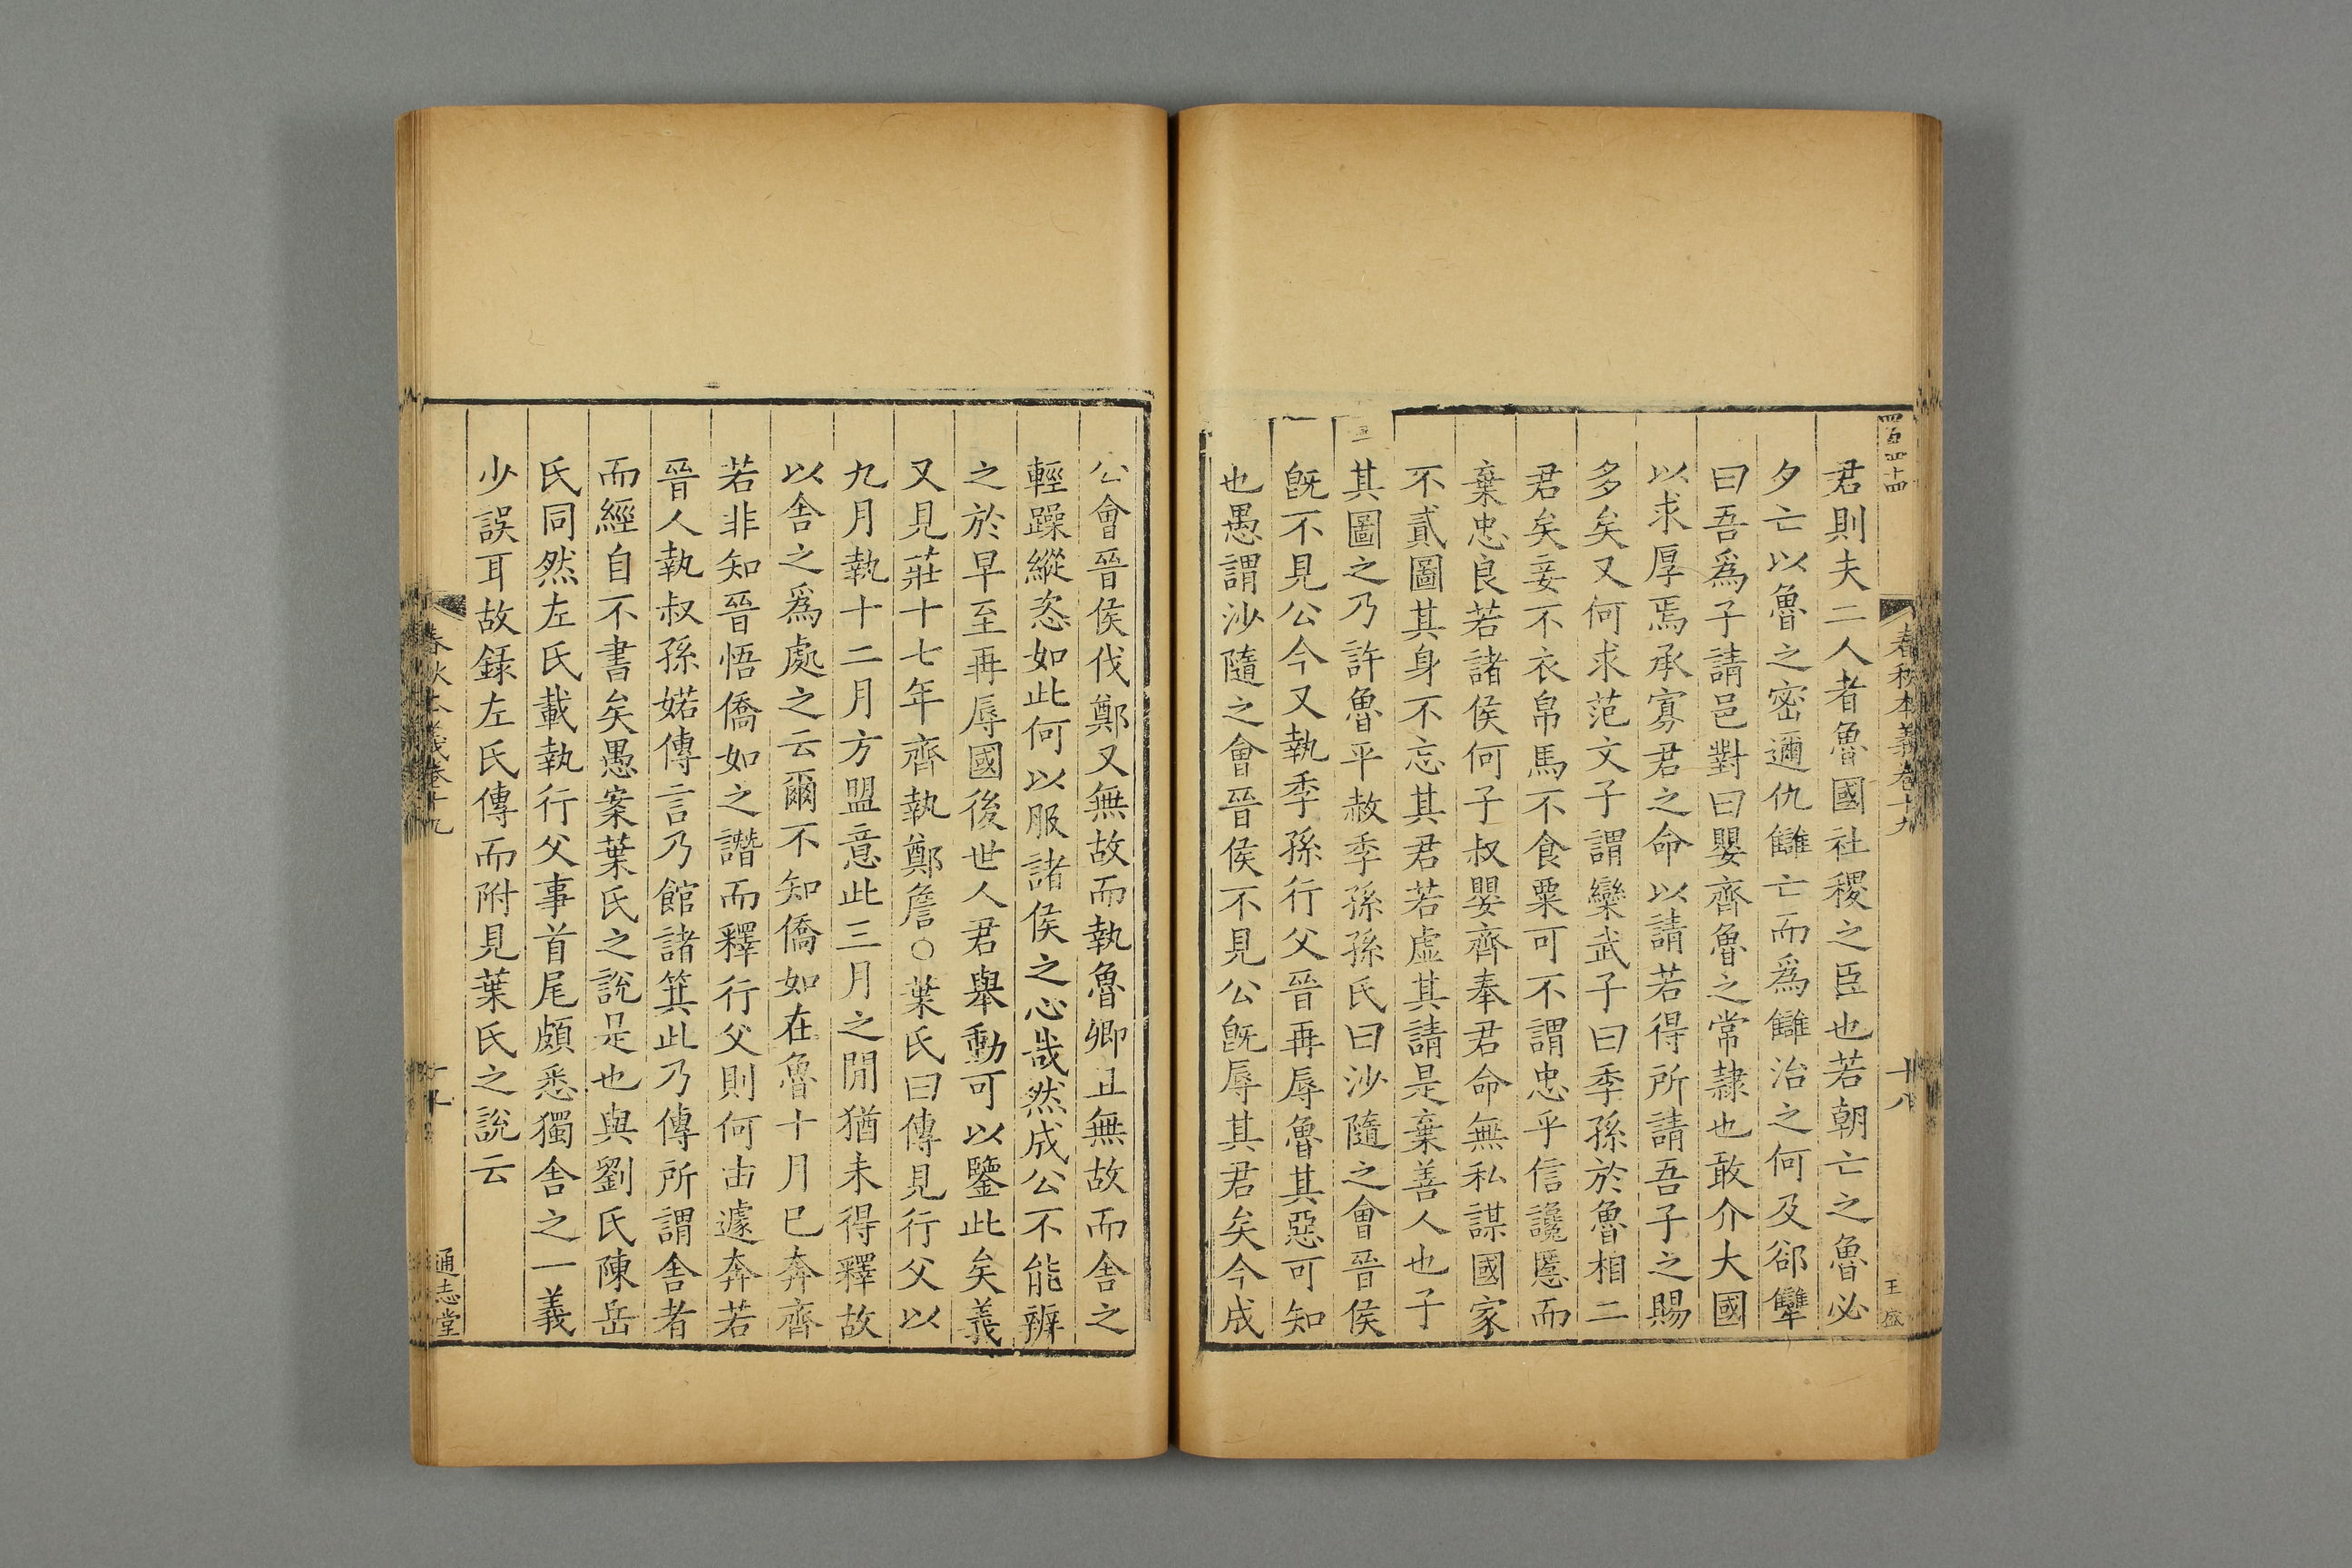 春秋本義卷十九
十八
王盛
君則夫二人者魯國社稷之臣也若朝亡之魯必
夕亡以魯之密邇仇讎亡而爲讎治之何及郤犨
曰吾爲子請邑對曰嬰齊魯之常隷也敢介大國
以求厚焉承寡君之命以請若得所請吾子之賜
多矣又何求范文子謂欒武子曰季孫於魯相二
君矣妾不衣帛馬不食粟可不謂忠乎信讒慝而
棄忠良若諸侯何子叔嬰齊奉君命無私謀國家
不貳圖其身不忘其君若虛其請是棄善人也子
其圖之乃許魯平赦季孫孫氏曰沙隨之會晉侯
旣不見公今又執季孫行父晉再辱魯其惡可知
也愚謂沙隨之會晉侯不見公旣辱其君矣今成
公會晉侯伐鄭又無故而執魯卿且無故而舍之
輕躁縱恣如此何以服諸侯之心哉然成公不能辨
之於早至再辱國後世人君舉動可以鑒此矣義
又見莊十七年齊執鄭詹○葉氏曰傳見行父以
九月執十二月方盟意此三月之閒猶未得釋故
以舍之爲處之云爾不知僑如在魯十月巳奔齊
若非知晉悟僑如之譖而釋行父則何由遽奔若
晉人執叔孫婼傳言乃館諸箕此乃傳所謂舍者
而經自不書矣愚案葉氏之說是也與劉氏陳岳
氏同然左氏載執行父事首尾頗悉獨舍之一義
少誤耳故錄左氏傳而附見葉氏之說云
春秋本義卷十九
通志堂